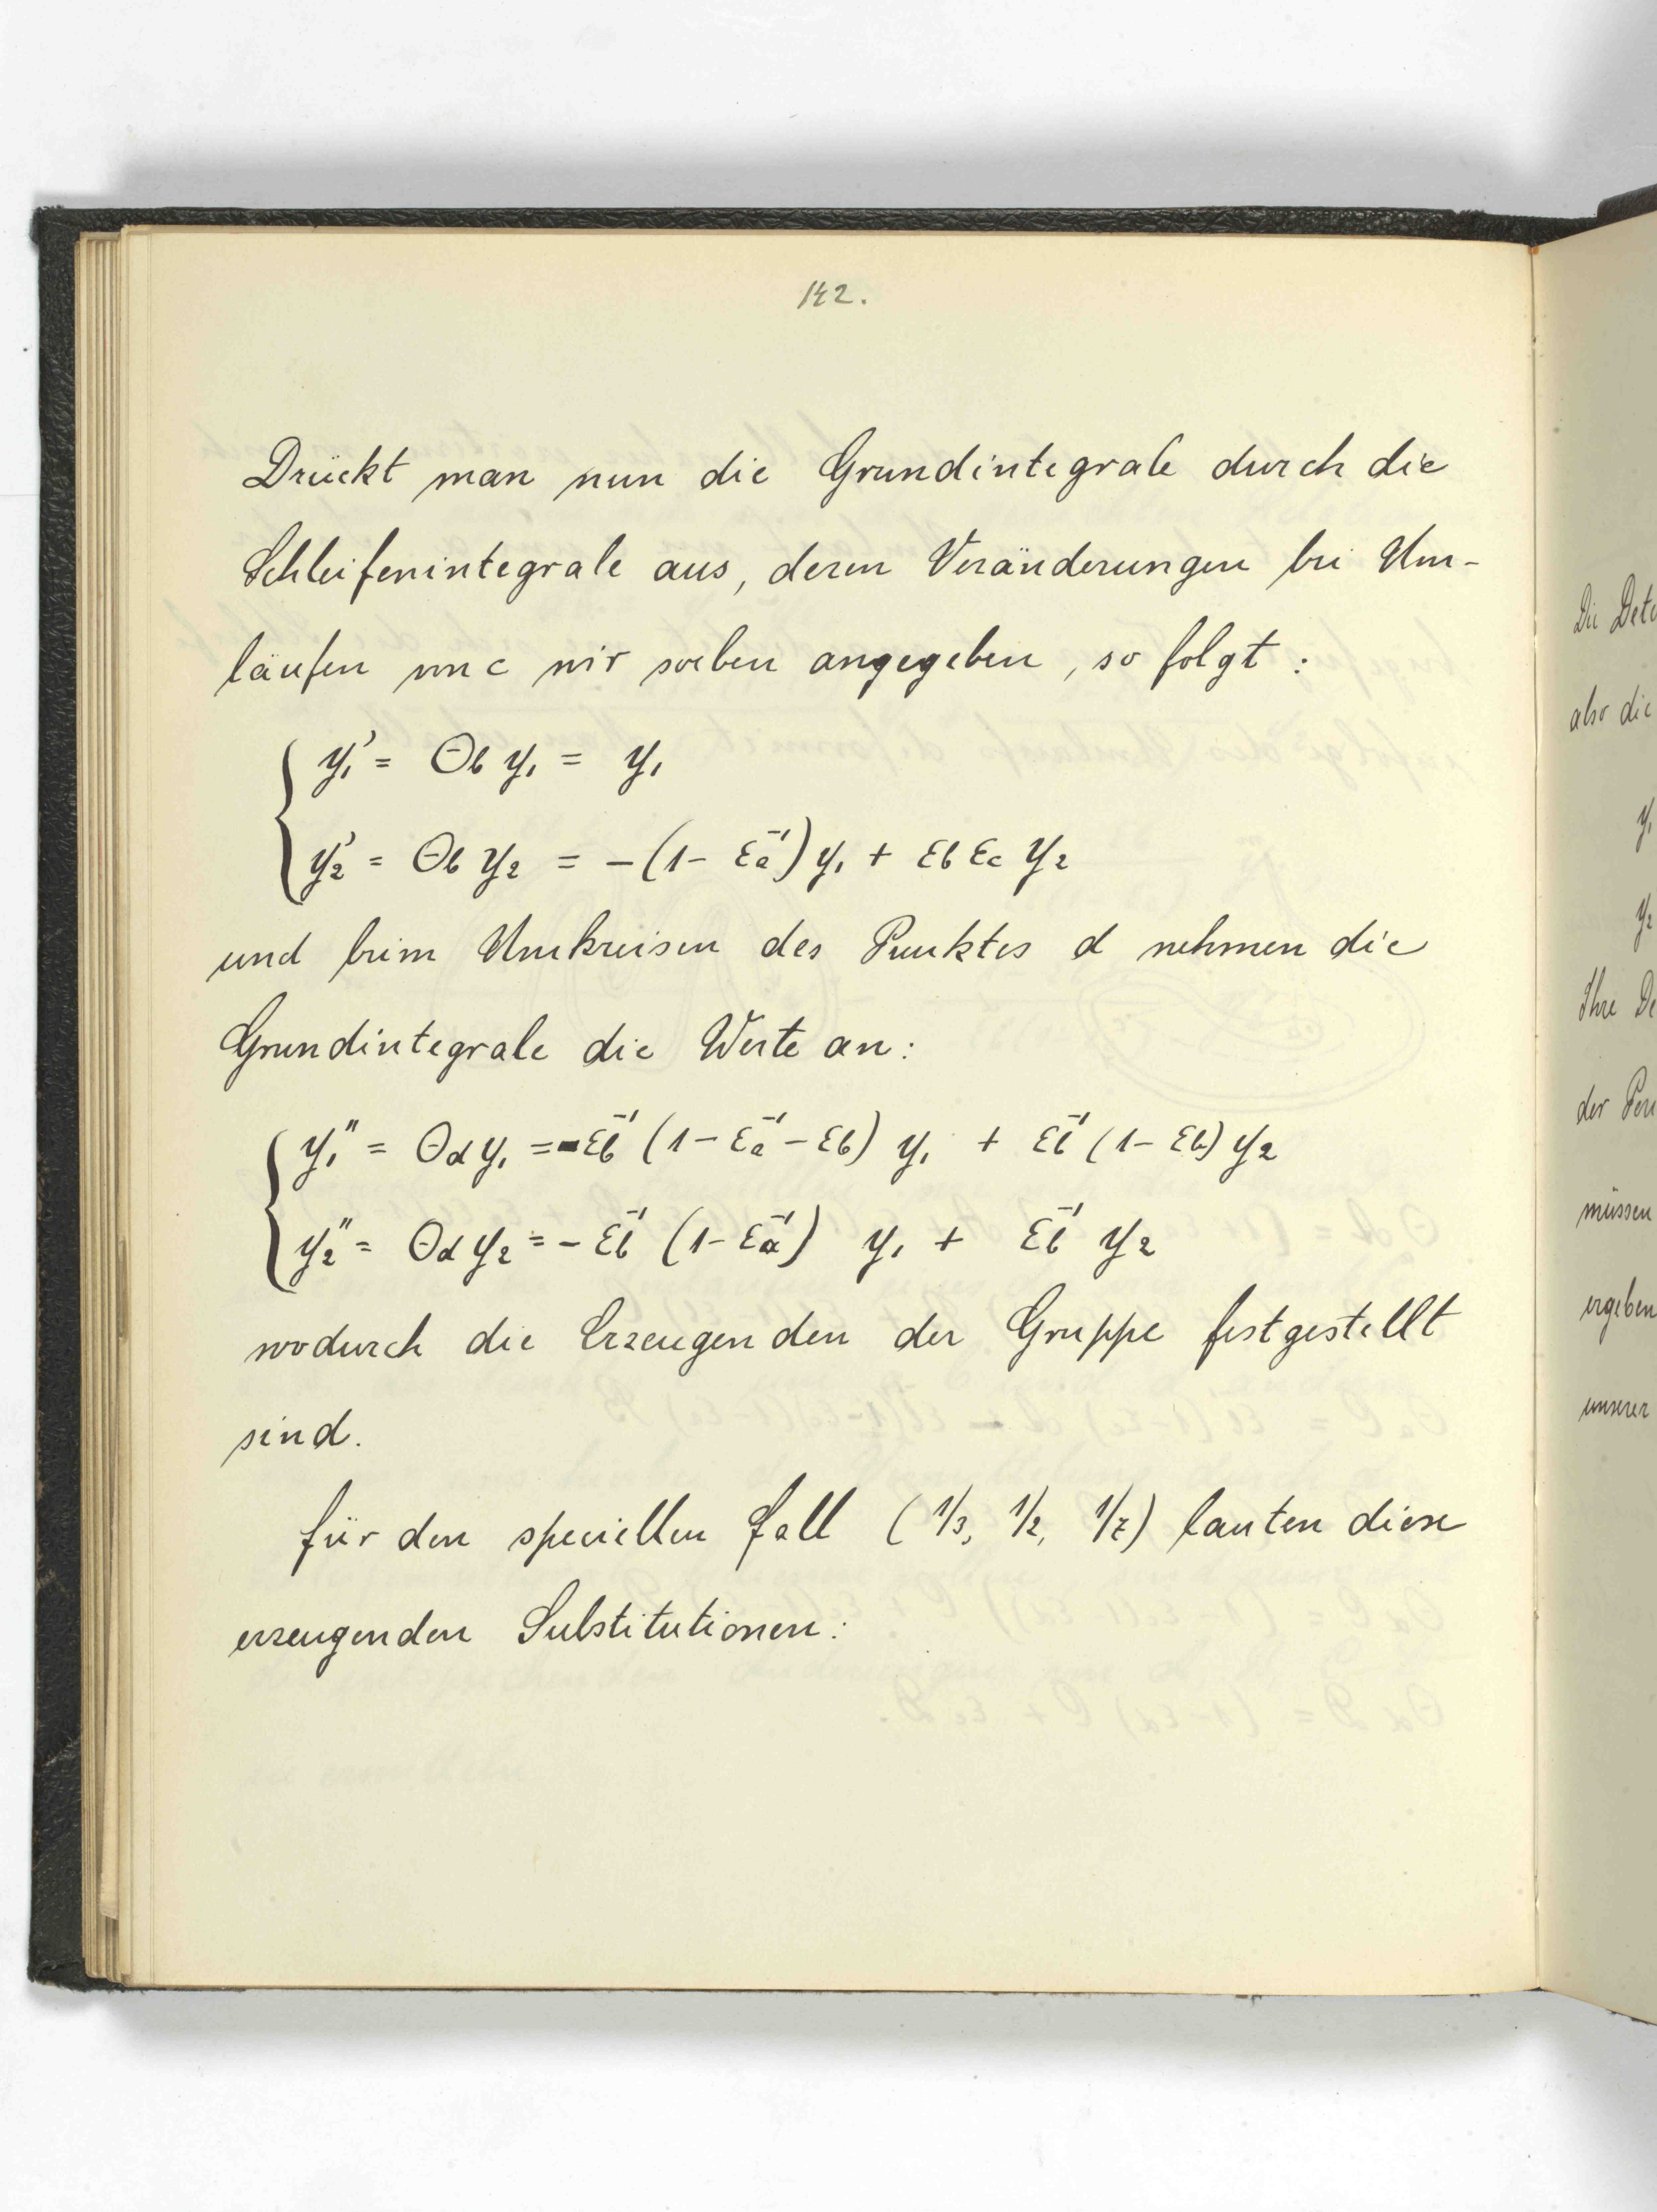 142.
Drückt man nun die Grundintegrale durch die
Schleifenintegrale aus, deren Veränderungen bei Um-
läufen um c wir soeben angegeben, so folgt:
y₁' = Θb y₁ = y₁
y₂' = Θb y₂ = -(1 - εa⁻¹) y₁ + εb εc y₂
und beim Umkreisen des Punktes d nehmen die
Grundintegrale die Werte an:
y₁'' = Θd y₁ = -εb⁻¹ (1 - εa⁻¹ - εb) y₁ + εb⁻¹ (1 - εb) y₂
y₂'' = Θd y₂ = -εb⁻¹ (1 - εa⁻¹) y₁ + εb⁻¹ y₂
wodurch die Erzeugenden der Gruppe festgestellt
sind.
Für den speciellen Fall (1/3, 1/2, 1/7) lauten diese
erzeugenden Substitutionen:
Die Dete
also die
y₁
y₂
Ihre De
der Per
müssen
ergeben
unserer